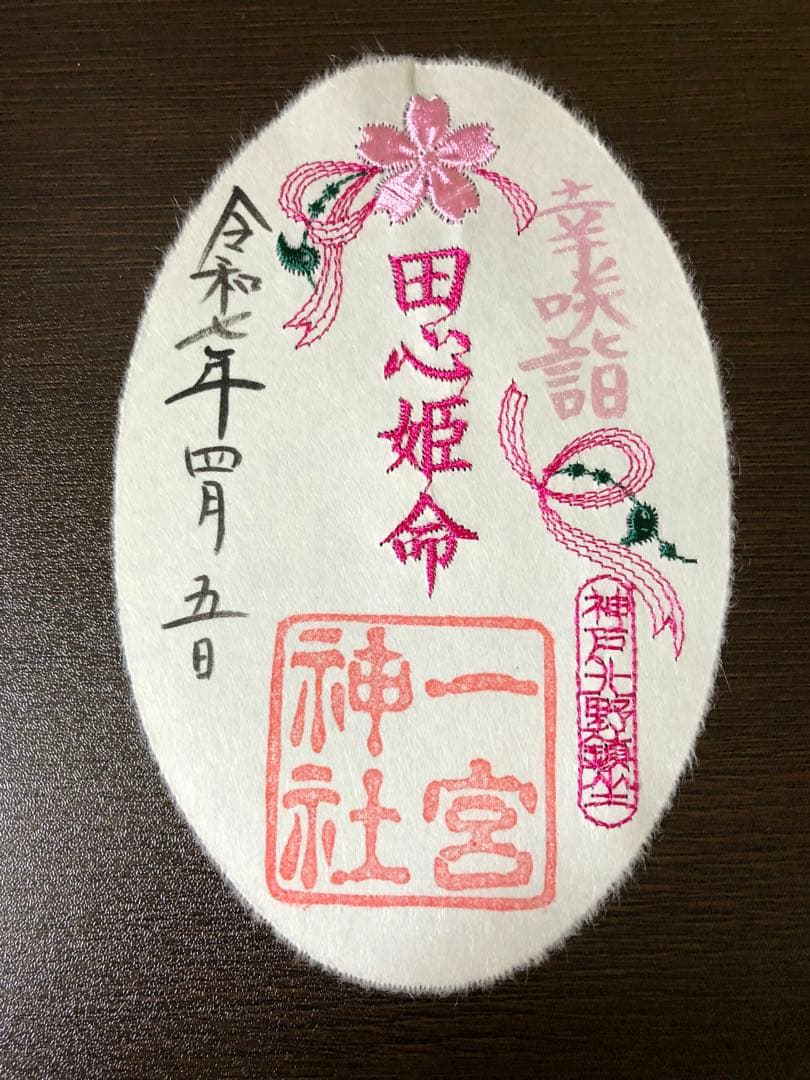 幸咲詣
神戸北野鎮坐
田心姫命
一宮
神社
令和七年四月五日